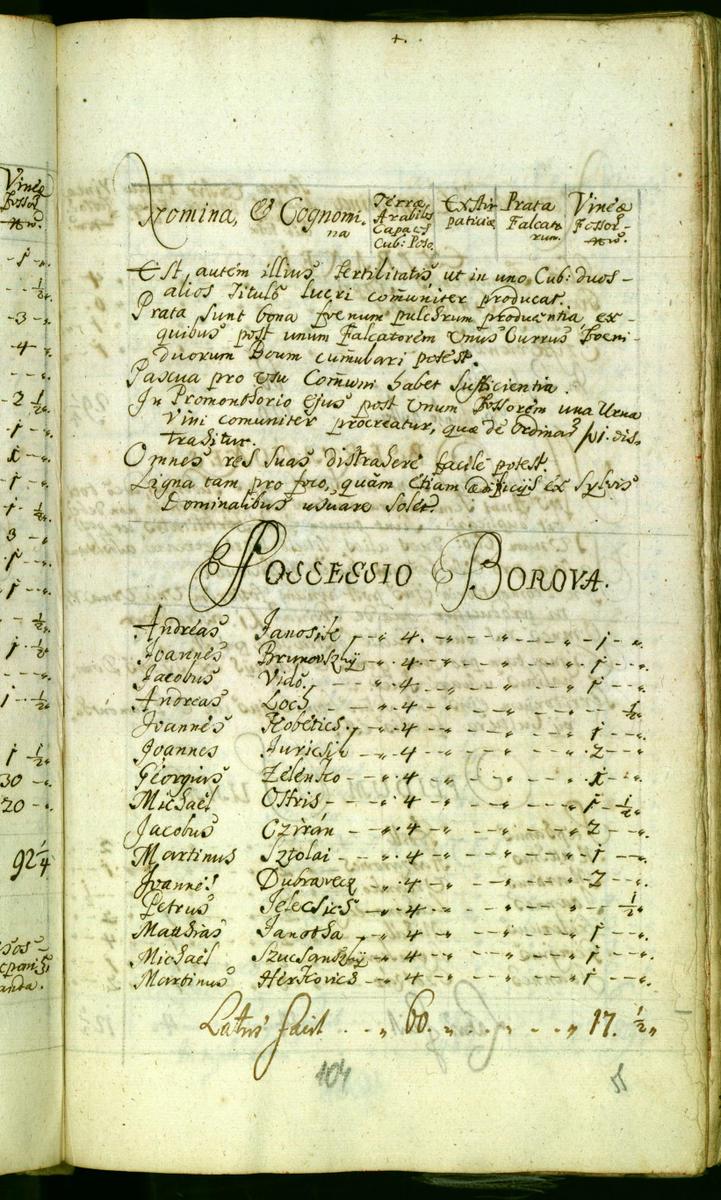 Vineæ
Fossor
Nomina, & Cognomi-
na
Terræ
Arabiles
Capaces
Cub: Poso.
Extir
paticiæ
Prata
Falcato
rum.
Vineæ
Fossor-
Est autem illius fertilitatis ut in uno Cub: duos-
alios Titulô lucri com̄uniter producat.
Prata sunt bona foenum pulchrum producentia ex-
quibus post unum Falcatorem Unus Currus Foeni-
duorum Boum cumulari potest.
Pascua pro Usu Com̄uni habet Sufficientia.
In Promonthorio ejus post Unum Fossorem una Urna
Vini comuniter procreatur, quæ de Ordina
trahitur.
Omnes res suas distrahere facile potest.
Ligna tam pro foco, quam etiam ædificijs ex Sylvis
Dominalibus usuare solet.
POSSESSIO BOROVA.
Andreas Janosik „ 4. „ „ 1 „
Joannes Brunovszky „ 4 „ „ 1 „
Jacobus Vido. „ 4 „ „ 1 „
Andreas Loch „ 4 „ „ ½
Joannes Hobetics „ 4 „ „ 1 „
Joannes Juricsin „ 4 „ „ 2 „
Georgius Zelenko „ 4 „ „ 1 „
Michael Ostris „ 4 „ „ 1 ½
Jacobus Czirán „ 4 „ „ 2 „
Martinus Sztolai „ 4 „ „ 1 „
Joannes Dubravecz „ 4 „ „ 2 „
Petrus Jelecsics „ 4 „ „ ½
Matthias Janotha „ 4 „ „ 1 „
Michael Szucsanszky „ 4 „ „ 1 „
Martinus Herkovics „ 4 „ „ 1 „
Latus facit „ 60. „ „ 17. ½
104